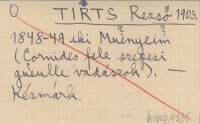 O TIRTS Rezső 1903.
1848-49 iki Műnyeim
? ?
(Cornides féle szepesi
gueulle vadászok). —
Késmárk.